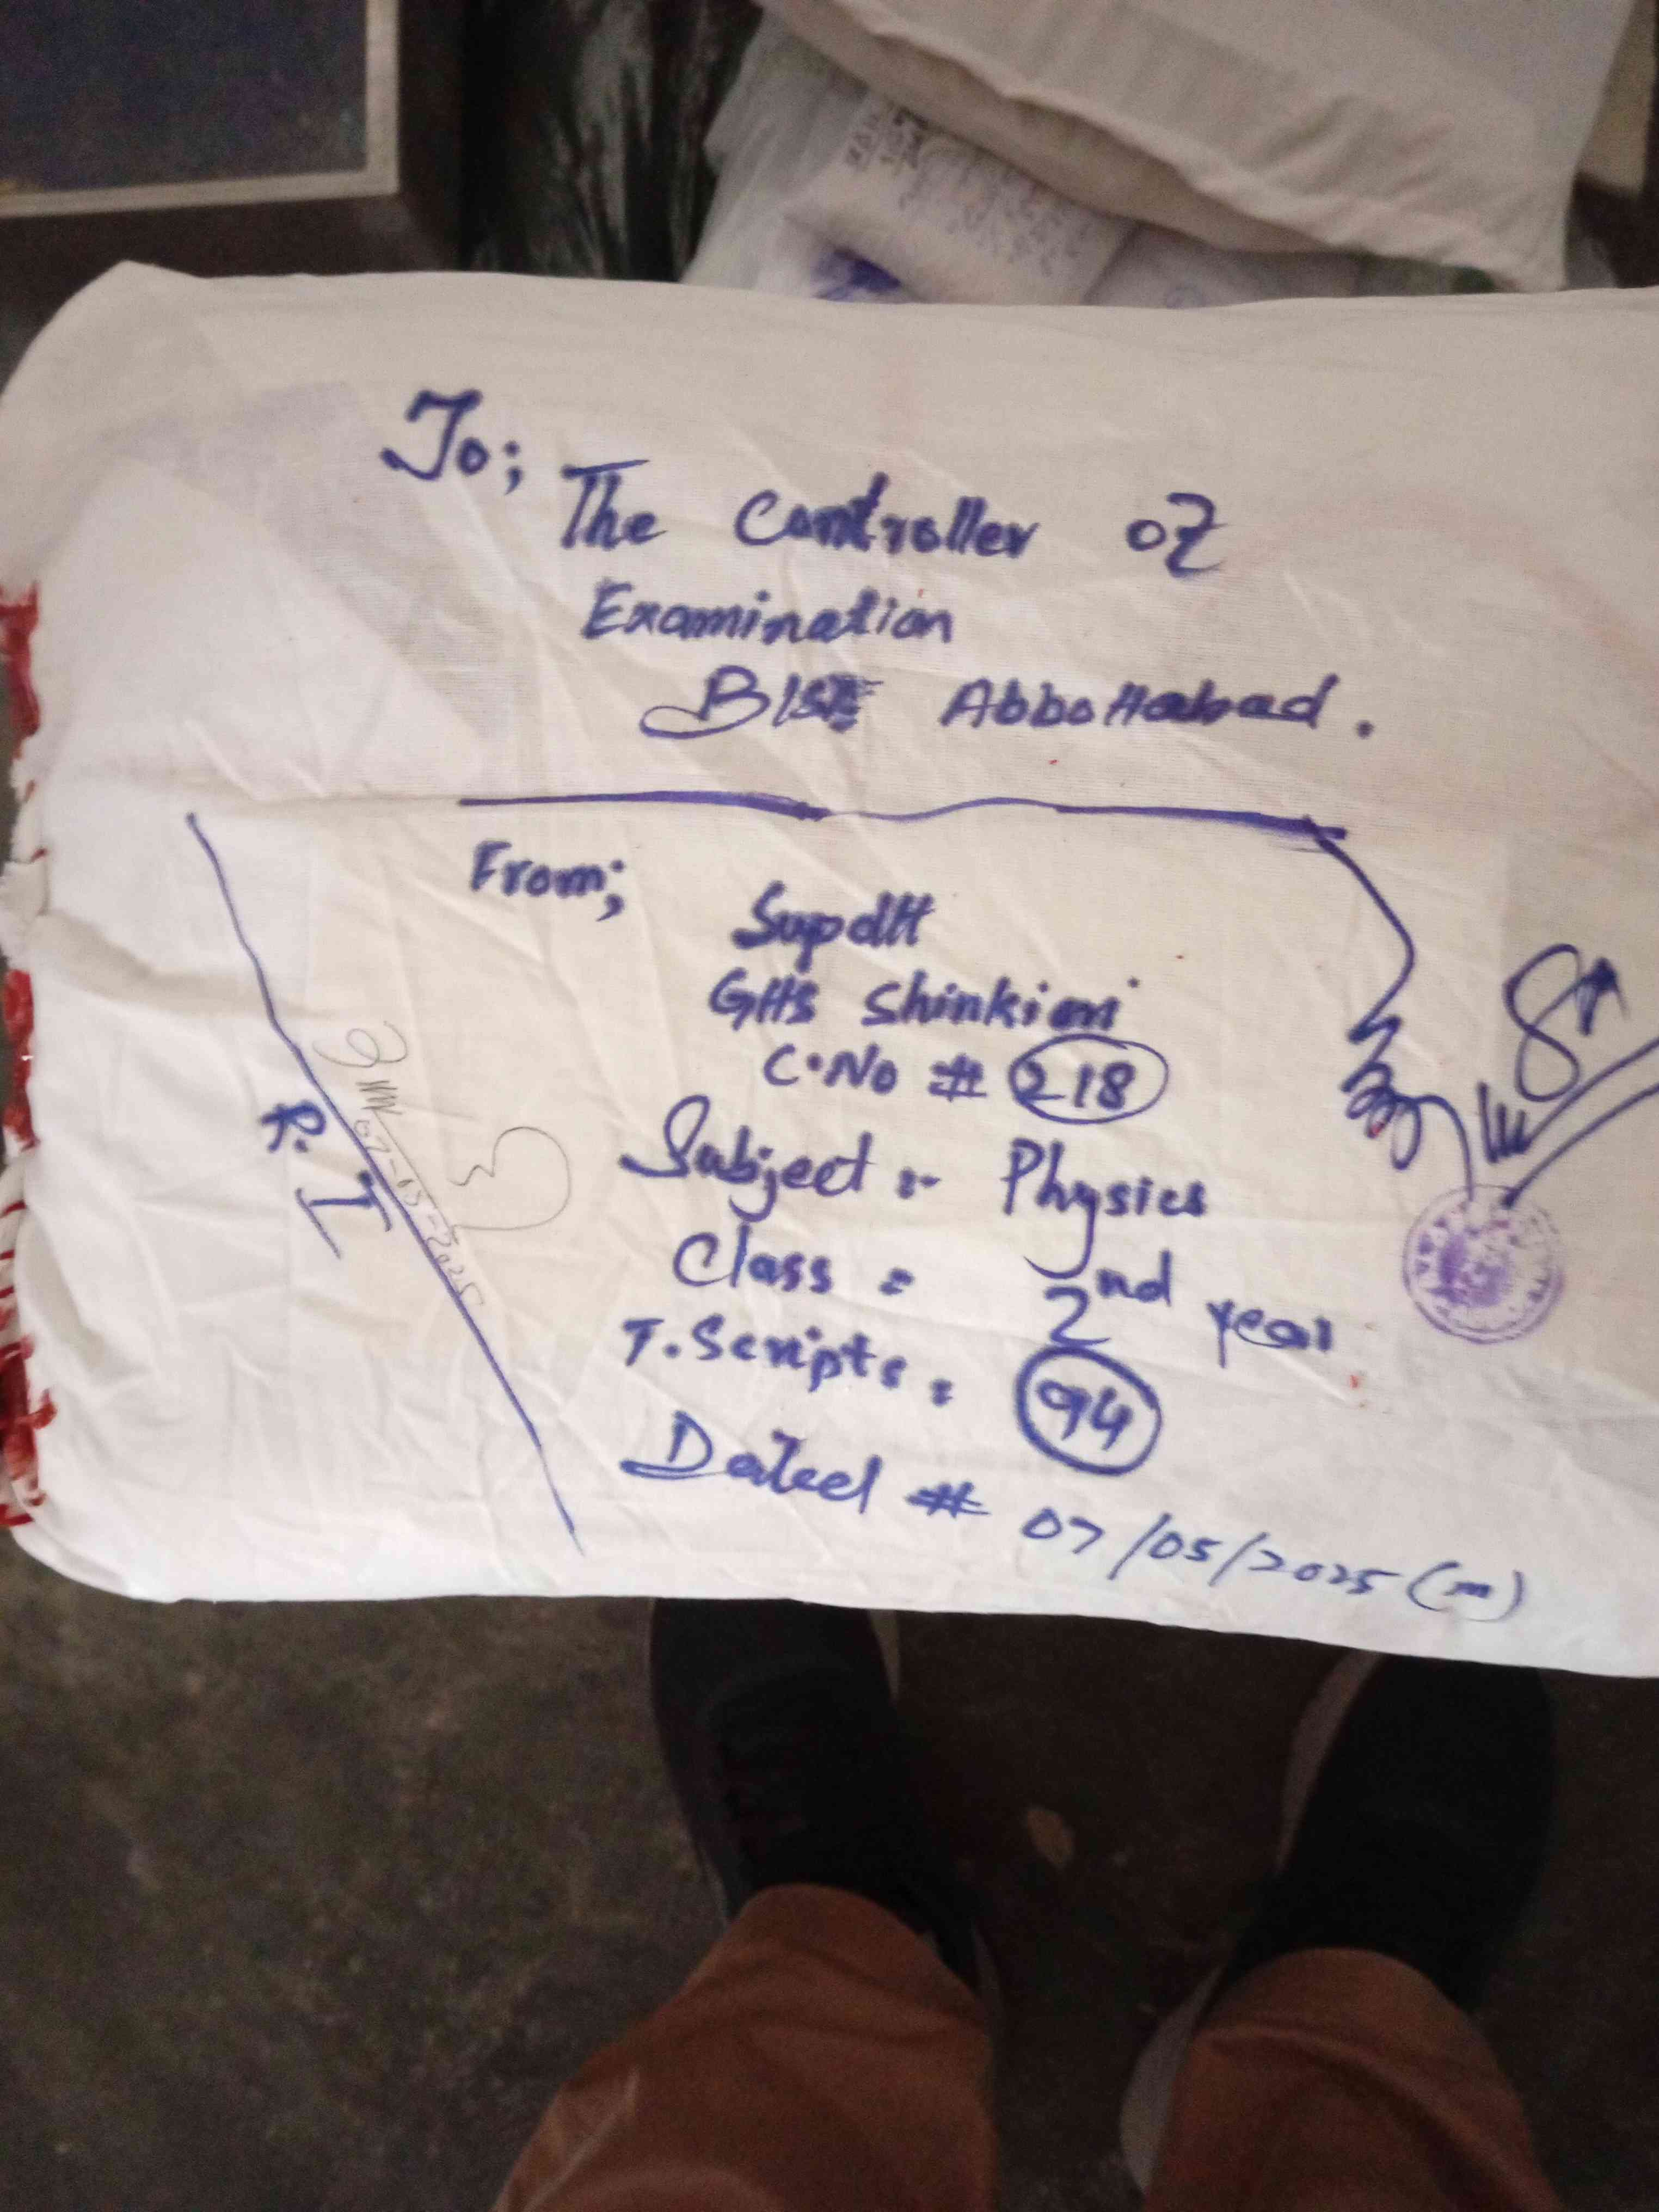 To;
The Controller of
Examination
BISE Abbottabad.
From;
Supdtt
GHS Shinkiari
C.No # 218
Subject :- Physics
Class = 2nd year
T. Scripts = 94
Dated # 07/05/2025 (m)
R. I
07-05-2025